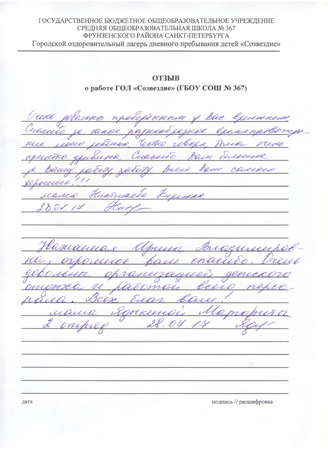 ГОСУДАРСТВЕННОЕ БЮДЖЕТНОЕ ОБЩЕОБРАЗОВАТЕЛЬНОЕ УЧРЕЖДЕНИЕ
СРЕДНЯЯ ОБЩЕОБРАЗОВАТЕЛЬНАЯ ШКОЛА № 367
ФРУНЗЕНСКОГО РАЙОНА САНКТ-ПЕТЕРБУРГА
Городской оздоровительный лагерь дневного пребывания детей «Созвездие»
ОТЗЫВ
о работе ГОЛ «Созвездие» (ГБОУ СОШ № 367)
Очень довольны проведённым у Вас временем
Спасибо за такое разнообразное времяпровожде-
ние моего ребенка. Честно говоря, была очень
приятно удивлена. Спасибо Вам большое
за Вашу работу, заботу. Всего Вам самого
хорошего!!!
мама Николаева Кирилла
28.04.17
Уважаемая Ирина Владимиров-
на, огромное вам спасибо. Очень
довольны организацией детского
отдыха и работой всего персо-
нала. Всех благ вам!
мама Маргариты
2 отряд 28.04.17
дата подпись // расшифровка